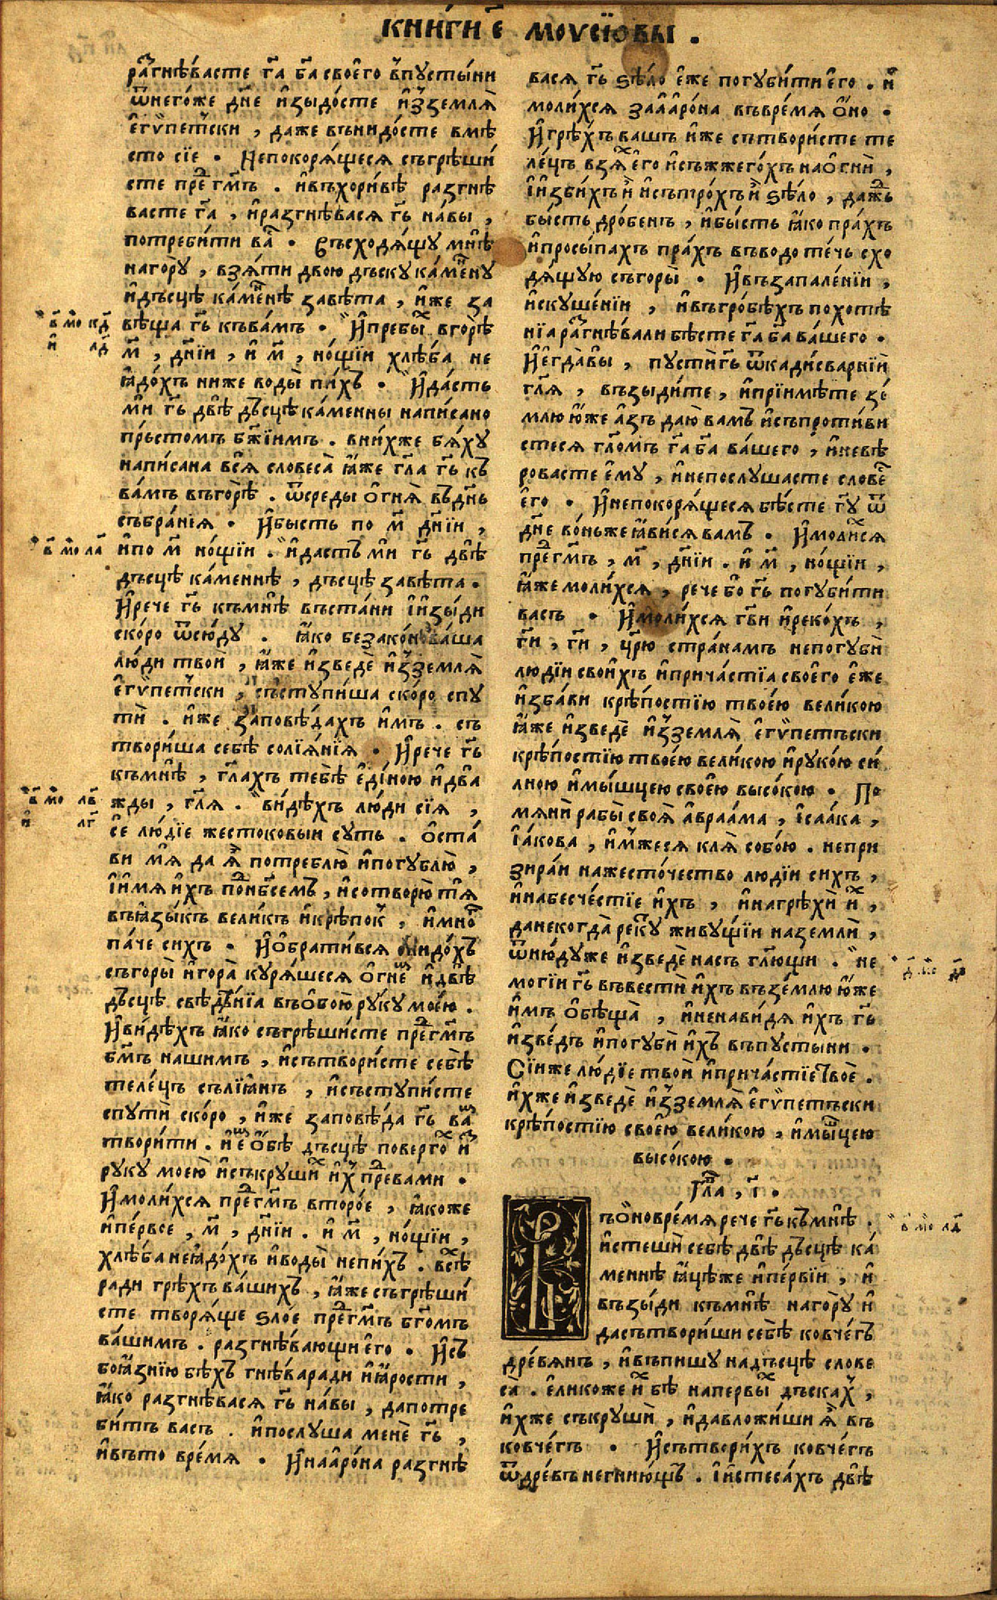 КНИ́ГИ Е҃ МОУСІ́ОВЫ .
ра́гнѣвасте га҃ ба҃ своѐго в̾пꙋсты́ни
ѿнегѡ́же дн҃е и҆зыдо́сте и҆з̾землѧ̀
є҆гѵ́петски , даже в̾ънидо́сте вмѣ
сто сїе . Непокорѧ́щесѧ съгрѣши́
сте прⷣе гм҃ъ . и҆въхори́вѣ разгнѣ
васте га҃ , и҆разгнѣ́васѧ гь҃ на́вы ,
потреби́ти ваⷭ . Съсходѧ́щꙋ мнѣ̀
нагорꙋ̀ , взѧ́ти двою дъскꙋ ка́менꙋ
и҆дъсцѣ ка́менѣ завѣ́та , и҆́же за
вѣща гь҃ къва́мъ . И҆пребы́ⷯ вгорѣ̀
м҃ , дні́й , и҆ м҃ , но́щїи хлѣ́ба не
ꙗ҆до́хъ ниже воды̀ пи́хъ . И҆да́сть
ми гь҃ двѣ̀ дъсцѣ ка́менны написано
пръстомъ бж҃їимъ . вни́хже бѧ́хꙋ
написана всѧ̀ словеса̀ ꙗ҆́же гл҃а гь҃ къ
ва́мъ въгорѣ̀ . ѿсреды̀ о҆гнѧ̀ въдн҃ь
събра́нїѧ . И҆бысть по м҃ дні́и ,
и҆по м҃ но́щїи . и҆дастъ ми гь҃ двѣ̀
дъсцѣ ка́меннѣ , дъсцѣ̀ завѣ́та .
И҆рече гь҃ къмнѣ̀ въста́ни і҆и҆зы́ди
ско́ро ѿсю́дꙋ . ꙗ҆́ко беззако́н ва́ша
лю́ди твоѝ , ꙗ҆́же и҆зведѐ и҆з̾землѧ̀
є҆гѵ́петски , състꙋпи́ша ско́ро спꙋ
тѝ . и҆́же заповѣ́дахъ и҆мъ . съ
твори́ша себѣ̀ солїѧ́нїѧ . И҆рече гь҃
къмнѣ̀ , гл҃ахъ тебѣ̀ є҆ди́ною и҆два
жды , гл҃ѧ . ви́дѣхъ лю́ди сїѧ̀ ,
сѐ лю́дїе жестоковыи сꙋть . ѡ҆ста́
ви мѧ̀ да ꙗ҆̀ потреблю̀ и҆погꙋблю̀ ,
і҆и́мѧ и҆́хъ поⷣнб҃семъ , и҆сотворю̀ тѧ̀
въꙗ҆зы́къ великъ и҆крѣ́покъ , и҆мно́ⷢ
па́че сихъ . И҆ѡ҆брати́всѧ снидо́хъ
съгоры̀ и҆гора̀ кꙋрѧ́шесѧ о҆гне́ⷨ и҆двѣ̀
дъсцѣ . свѣдѣ́нїѧ въѻ҆бою̀ рꙋ́кꙋ мое́ю .
И҆ви́дѣхъ ꙗ҆́ко съгрѣши́сте преⷣ гм҃ъ
бм҃ъ нашимъ , и҆сътвори́сте себѣ̀
теле́цъ сълїѧ́нъ , и҆състꙋпи́сте
спꙋтѝ ско́ро , и҆́же заповѣ́да гь҃ ваⷨ
твори́ти . и҆еⷨ ѻ҆́бѣ дъсцѣ̀ поверго́ⷯ иⷥ
рꙋкꙋ моею̀ и҆съкрꙋшиⷯ и҆хъ преⷣвами .
И҆моли́хсѧ преⷣгм҃ъ второ́е , ꙗ҆коже
и҆пе́рвое , м҃ , дні́и . и҆ м҃ , но́щїи ,
хлѣ́ба неꙗ҆до́хъ и҆воды̀ непи́хъ . всѣ̀ⷯ
ради грѣхъ ва́шихъ , ꙗ҆́же съгрѣши́
сте творѧ́ще ѕло́е преⷣгм҃ъ бг҃омъ
ва́шимъ . разгнѣвающи є҆го . И҆съ
боꙗ҆́знїю бѣхъ гнѣ́варади и҆ꙗ҆́рости ,
ꙗ҆́ко разгнѣ́васѧ гь҃ на́вы , дапотре
би́тъ васъ . и҆послꙋша менѐ гь҃ ,
и҆въто вре́мѧ . И҆наа҆ро́на разгнѣ
васѧ гь҃ ѕѣло̀ є҆́же погꙋби́ти є҆го . и҆
моли́хсѧ заа҆аро́на въвре́мѧ ѻ҆́но .
И҆грѣ́хъ вашъ и҆́же сътвори́сте те
ле́цъ взѧⷯ є҆го и҆съжжего́хъ наѻ҆гнѝ ,
і҆и҆зби́хъ иⷯ и҆сътро́хъ иⷯ ѕѣло̀ , даⷤⷣ
бы́сть дро́бенъ , и҆бы́сть ꙗ҆ко пра́хъ
и҆просы́пахъ пра́хъ въводо те́чь схо
дѧ́щꙋю съгоры̀ . И҆въѕапале́нїи ,
и҆скꙋше́нїи , и҆въгробѣ́хъ похотѣ
нїа раⷥгнѣ́вали бѣсте га҃ ба҃ ва́шего .
И҆є҆гда̀вы , пꙋсти гь҃ ѿкадисварнїи
гл҃ѧ , възыди́те , и҆прїимѣ́те зе́
млю ю҆́же а҆́зъ даю̀ вамъ и҆съпроти́ви
стесѧ гл҃омъ га҃ ба҃ ва́шего , и҆невѣ
ровасте є҆мꙋ̀ , и҆непослꙋшасте словеⷭ
є҆го . И҆непокорѧ́щесѧ бѣсте гꙋ҃ ѿ
дн҃е во́ньже ꙗ҆ви́сѧ вамъ . И҆моли́ⷯсѧ
преⷣгм҃ъ , м҃ , дні́и . и҆ м҃ , но́щїи ,
ꙗ҆́же моли́хсѧ , рече бо̀ гь҃ погꙋби́ти
васъ . И҆моли́хсѧ гв҃и и҆реко́хъ ,
ги҃ , ги҃ , цр҃ю стра́намъ непогꙋбѝ
людїи свои́хъ и҆прича́стїа своѐго є҆́же
и҆зба́ви крѣ́постїю твое́ю вели́кою
ꙗ҆́же и҆зведѐ и҆з̾землѧ̀ є҆гѵ́петъски
крѣ́постїю твое́ю вели́кою и҆рꙋко́ю си́
лною и҆мы́шцею свое́ю высо́кою . По
мѧнѝ рабы̀ своѧ̀ а҆враа́ма , і҆саа́ка ,
і҆а́кова , и҆́мжесѧ клѧ̀ собо́ю . непри
зира́и нажесто́чество лю́дїи си́хъ ,
и҆набесче́стїе и҆́хъ , и҆нагрѣхи и҆ⷯ ,
данекогда̀ рекꙋ̀ живꙋ́щїи наземлѝ ,
ѿню́дꙋже и҆зведѐ насъ гл҃ющи . не
могїи гь҃ въвестѝ и҆́хъ възе́млю ю҆́же
и҆мъ ѻ҆бѣща̀ , и҆ненави́дѧ и҆́хъ гь҃
и҆зведѣ и҆погꙋби и҆́хъ въпꙋсты́ни .
Сїи́же лю́дїе твоѝ и҆прича́стїе твоѐ .
и҆́хже и҆зведѐ и҆з̾землѧ̀ є҆гѵ́петъски
крѣ́постїю свое́ю вели́кою , и҆мы́шцею
высо́кою .
Гла҃ , і҃ .
Въѻ҆но вре́мѧ рече гь҃ къмнѣ̀ .
и҆стешѝ себѣ̀ двѣ̀ дъсцѣ̀ ка́
меннѣ ꙗ҆цѣ́же и҆пе́рвїи , и҆
възы́ди къмнѣ̀ нагорꙋ̀ и҆
дасътвори́ши себѣ̀ ковче́гъ
дре́вѧнъ , и҆въпишꙋ̀ надъсцѣ̀ слове
са̀ . є҆ли́коже и҆ⷯ бѣ̀ наперьвы́ⷯ дъска́хъ ,
и҆́хже съкрꙋшѝ , и҆давложи́ши ꙗ҆̀ въ
ковче́гъ . И҆сътвори́хъ ковче́гъ
ѿдре́въ негнию́щъ . І҆и҆стеса́хъ двѣ̀
в҃ мо҃ кд҃
и҃ лд҃
в҃ мо҃ ла҃
в҃ мо҃ лв҃
и҃ лг҃
в҃ мо҃ лд҃